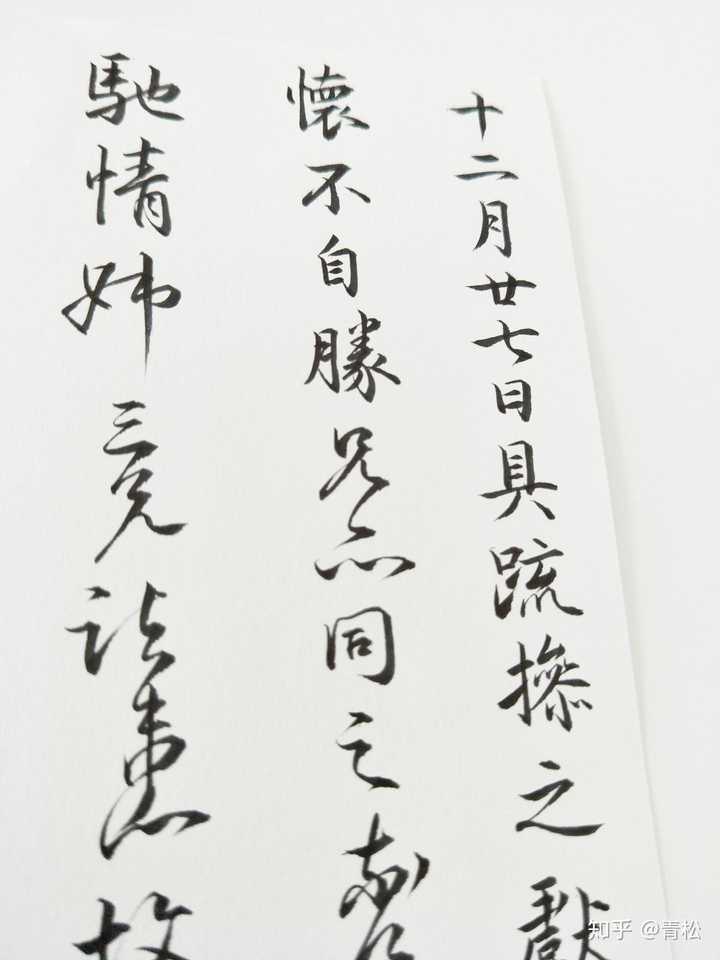 十二月廿七日具疏操之獻
懷不自勝兄亦同之
馳情姊三兒諸患故
知乎 @青松